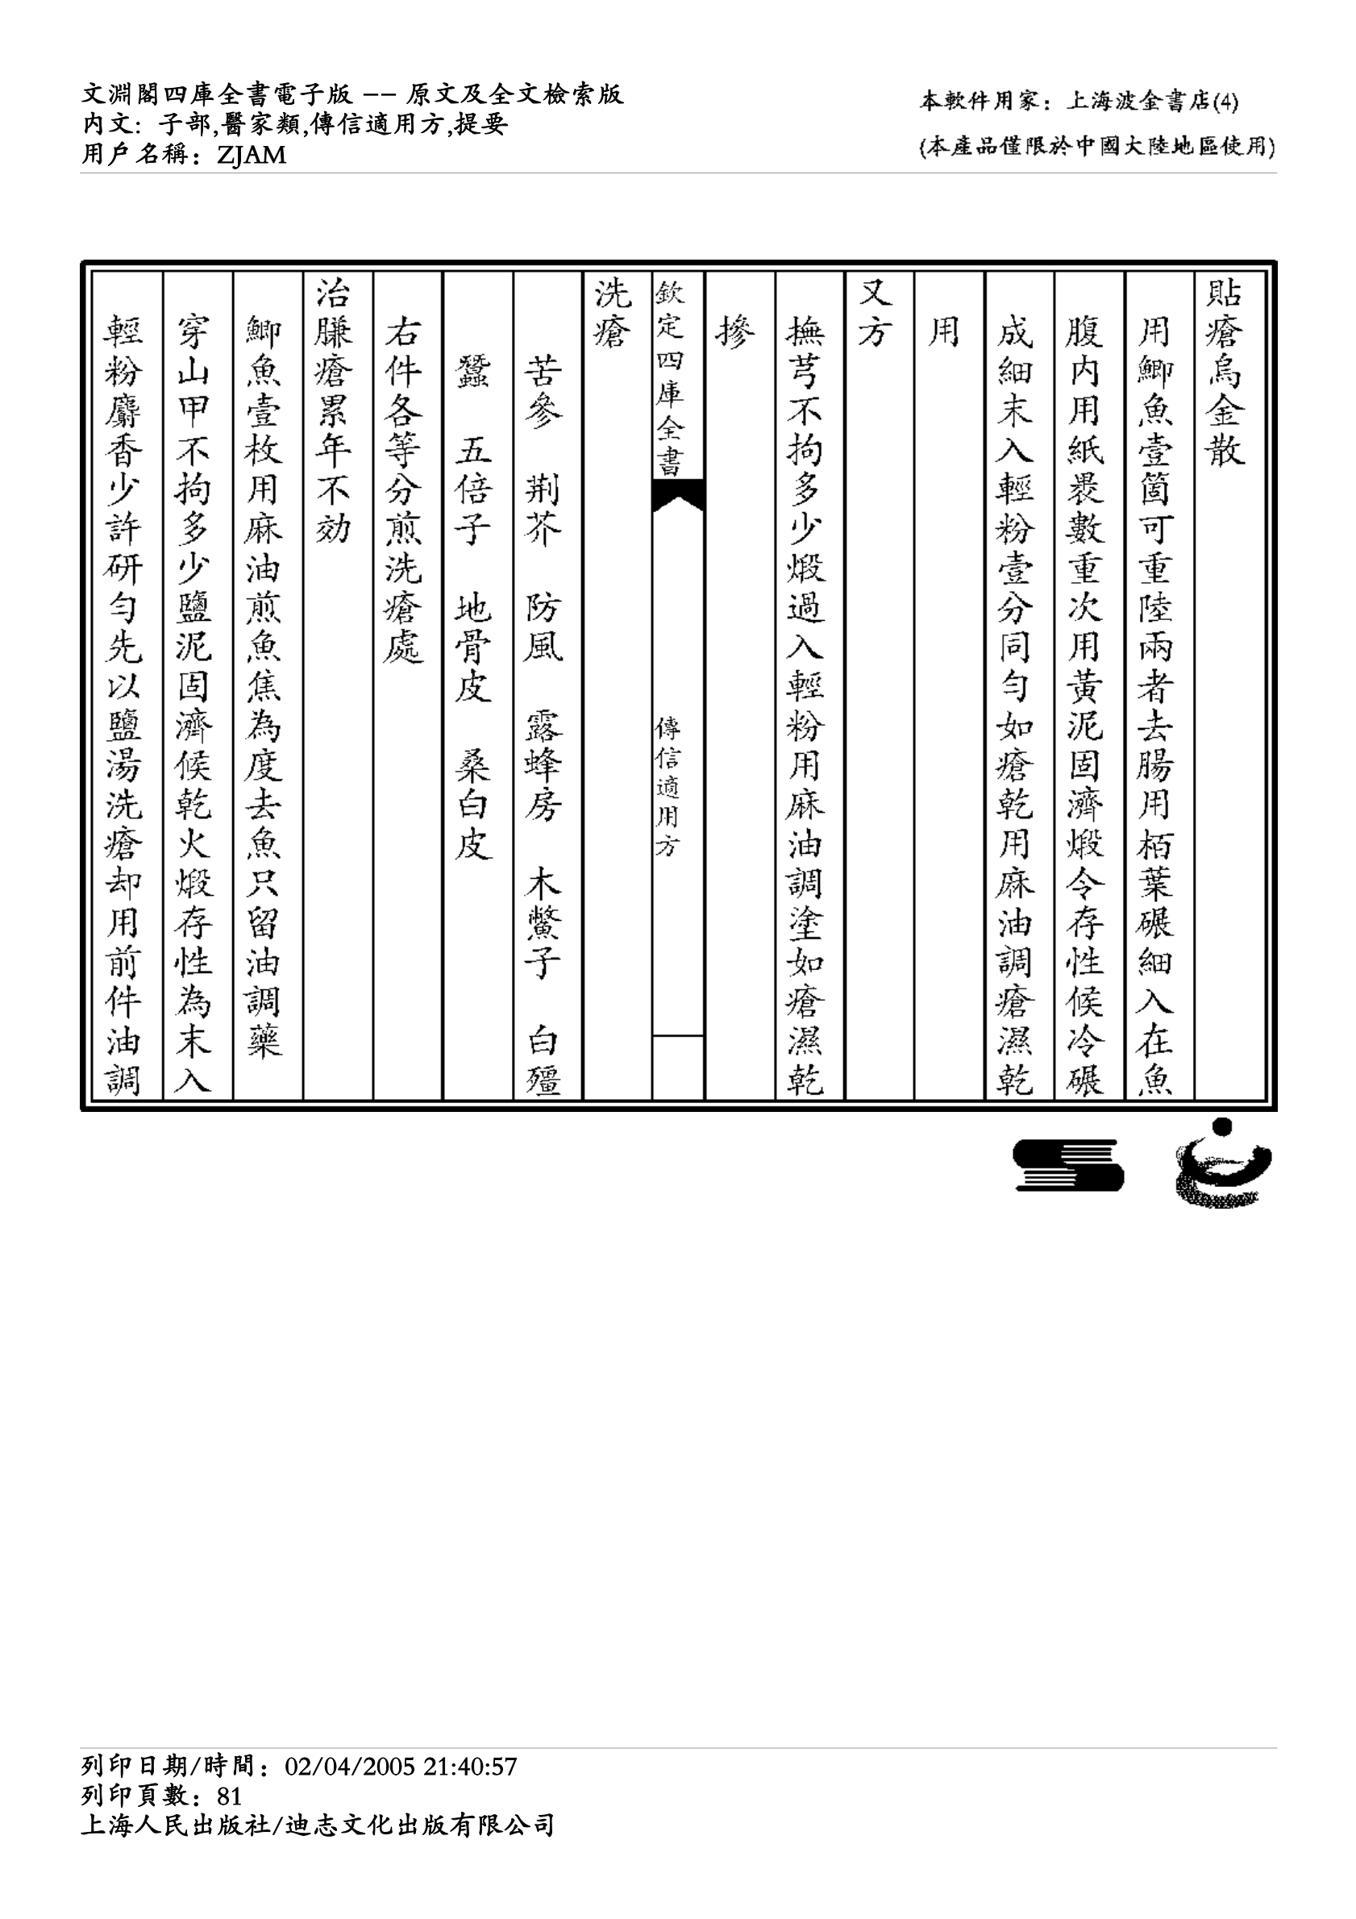 文淵閣四庫全書電子版 -- 原文及全文檢索版
内文: 子部,醫家類,傳信適用方,提要
用戶名稱: ZJAM
本軟件用家: 上海波金書店(4)
(本產品僅限於中國大陸地區使用)
貼瘡烏金散
用鯽魚壹箇可重陸兩者去腸用栢葉碾細入在魚
腹内用紙褁數重次用黃泥固濟煅令存性候冷碾
成細末入輕粉壹分同勻如瘡乾用麻油調瘡濕乾
用
又方
撫芎不拘多少煅過入輕粉用麻油調塗如瘡濕乾
摻
欽定四庫全書
傳信適用方
洗瘡
苦參 荆芥 防風 露蜂房 木鱉子 白殭
蠶 五倍子 地骨皮 桑白皮
右件各等分煎洗瘡處
治臁瘡累年不効
鯽魚壹枚用麻油煎魚焦為度去魚只留油調藥
穿山甲不拘多少鹽泥固濟候乾火煅存性為末入
輕粉麝香少許研勻先以鹽湯洗瘡却用前件油調
列印日期/時間: 02/04/2005 21:40:57
列印頁數: 81
上海人民出版社/迪志文化出版有限公司